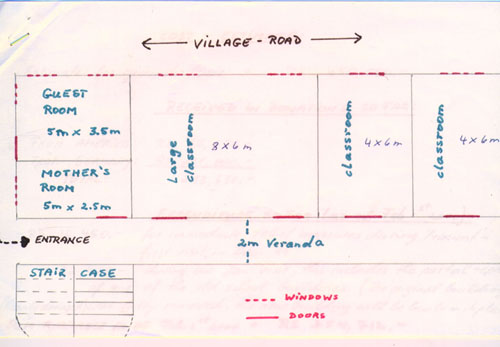 VILLAGE - ROAD
GUEST
ROOM
5m x 3.5m
MOTHER'S
ROOM
5m x 2.5m
Large
classroom
8x6m
classroom
4x6m
classroom
4x6m
ENTRANCE
2m Veranda
STAIR CASE
WINDOWS
DOORS